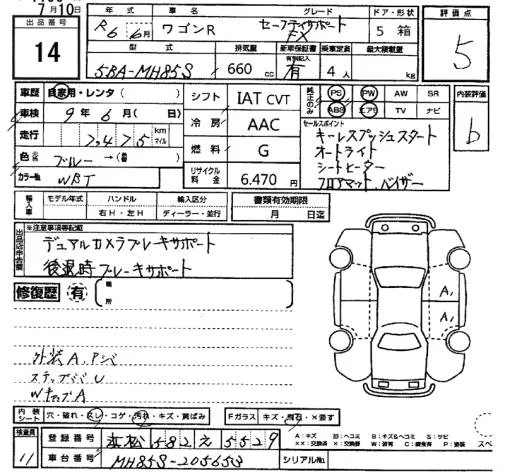 7月10日
出品番号
14
年式 車名 グレード ドア・形状 評価点
R6年6月 ワゴンR セーフティサポート FX 5 箱 5
型式 排気量 新車保証書 乗車定員 最大積載量
5BA-MH85S 660cc 有 4人 kg
車歴 自家用・レンタ( )
車検 9年6月( 日)
走行 7,475 km マイル
色 ブルー →( )
カラー№ WBT
シフト IAT CVT
冷房 AAC
燃料 G
リサイクル料金 6,470円
純正のみ PS PW AW SR
ABS エアB TV ナビ
内装評価 b
セールスポイント
キーレスプッシュスタート
オートライト
シートヒーター
フロアマット、バイザー
輸入車 モデル年式 ハンドル 輸入区分 書類有効期限
右H・左H ディーラー・並行 月 日迄
出品店申告欄
※注意事項等記載
デュアルカメラブレーキサポート
後退時ブレーキサポート
修復歴 有 箇所
A1
A1
外装A、Pシミ
Wキップ A
内装シート 穴・破れ・スレ・コゲ・汚れ・キズ・黄ばみ Fガラス キズ・飛石・X要す
検査員 11
登録番号 浜松 582 え 5529
車台番号 MH85S-205653
シリアル№
A:キズ B:キズ&ヘコミ S:サビ